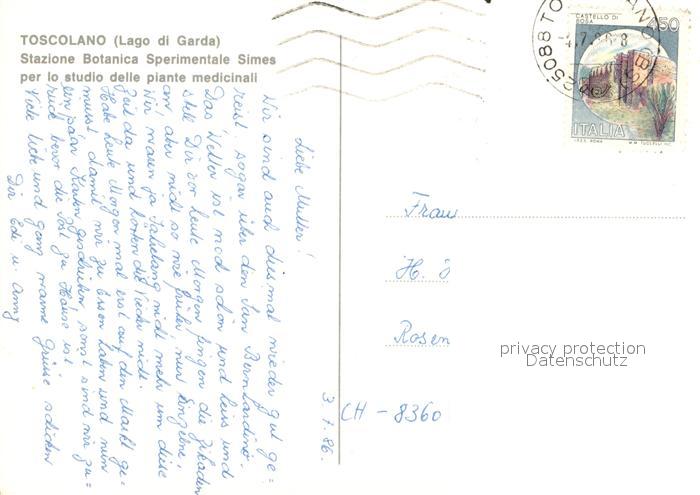 TOSCOLANO (Lago di Garda)
Stazione Botanica Sperimentale Simes
per lo studio delle piante medicinali
3.7.86.
Liebe Mutter!
Wir sind auch diesmal wieder gut ge=
reist, sogar über den San Bernardino.
Das Wetter ist noch schön und heiss und
stell Dir vor heute Morgen fingen die Zikaden
an, aber nicht so wie früher, nur einzelne.
Wir waren ja jahrelang nicht mehr um diese
Zeit da und hörten die Viecher nicht.
Habe heute Morgen mal erst auf den Markt ge-
musst damit wir zu Essen haben und nun
ein paar Karten geschrieben sonst sind wir zu=
rück bevor die Post zu Hause ist.
Viele liebe und ganz warme Grüsse schicken
Dir Edi u. Anny
CASTELLO DI
ROSA
450
ITALIA
Frau
H. J
Rosen
privacy protection
Datenschutz
CH - 8360